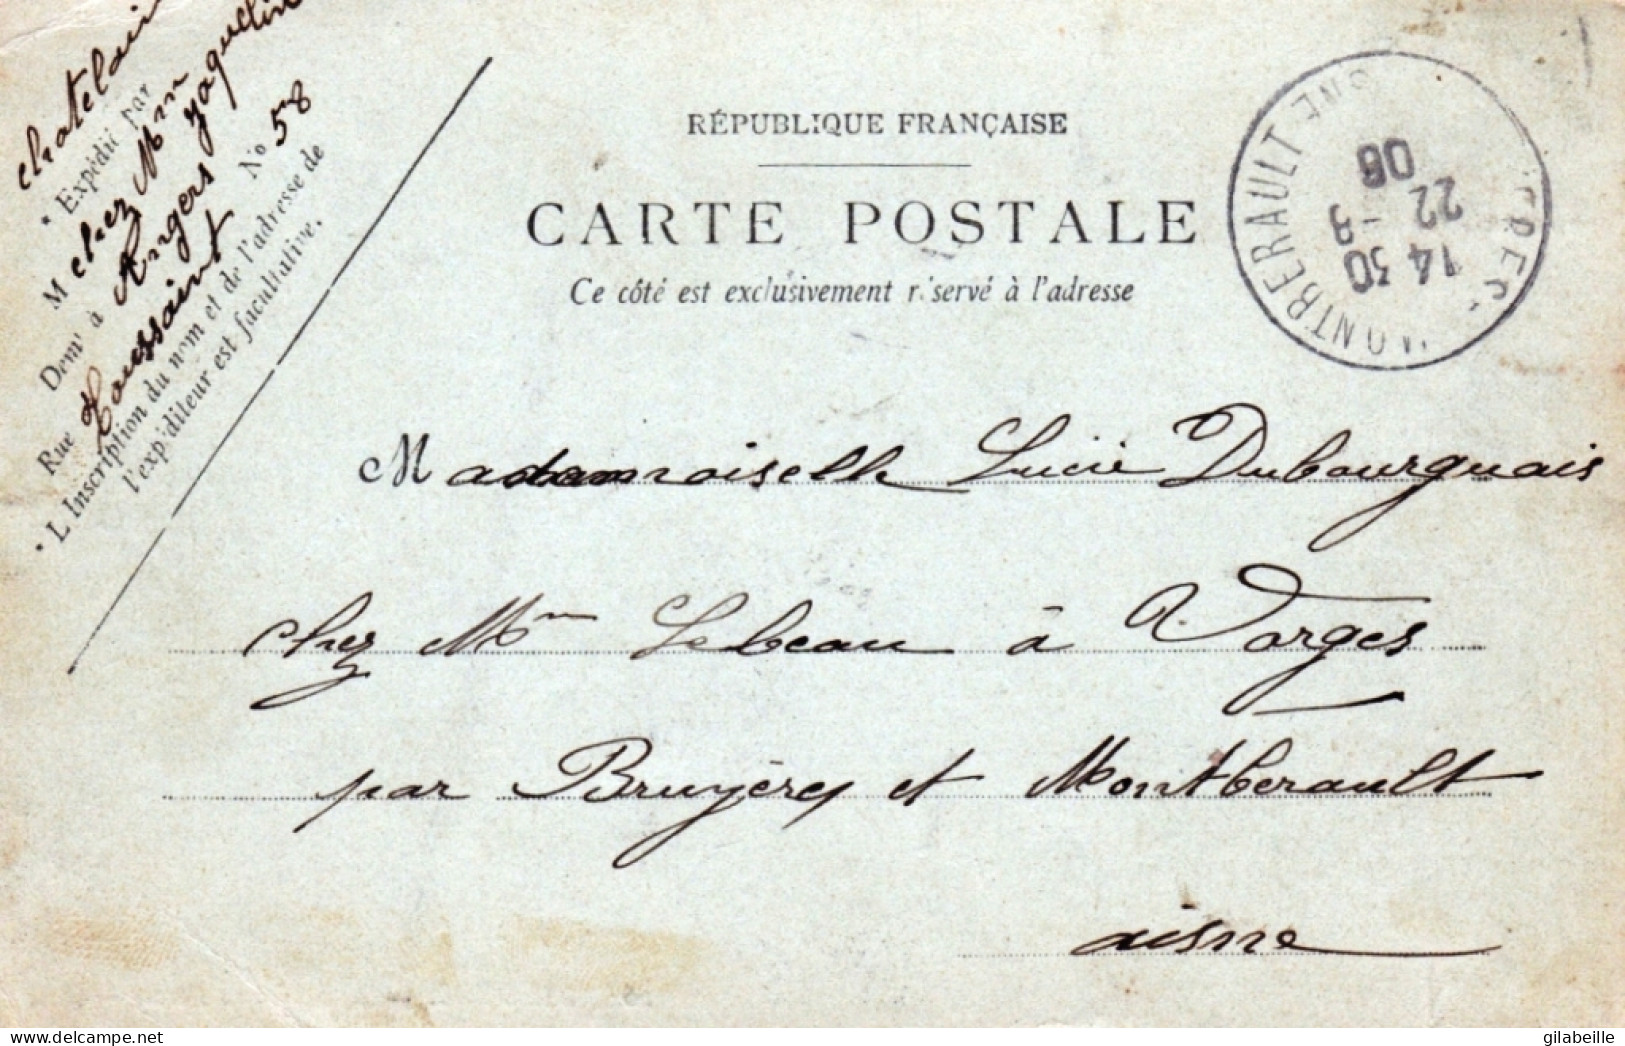 chatelain
• Expédié par
M chez Mme Jaquelin
Demt à Angers No 58
Rue Toussaint
• L'Inscription du nom et de l'adresse de
l'expéditeur est facultative.
RÉPUBLIQUE FRANÇAISE
CARTE POSTALE
Ce côté est exclusivement réservé à l'adresse
MONTBERAULT
14 30
22 - 3
06
Mademoiselle Lucie Dubourguais
chez Mme Lebeau à Vorges
par Bruyères et Montberault
aisne
gilabeille